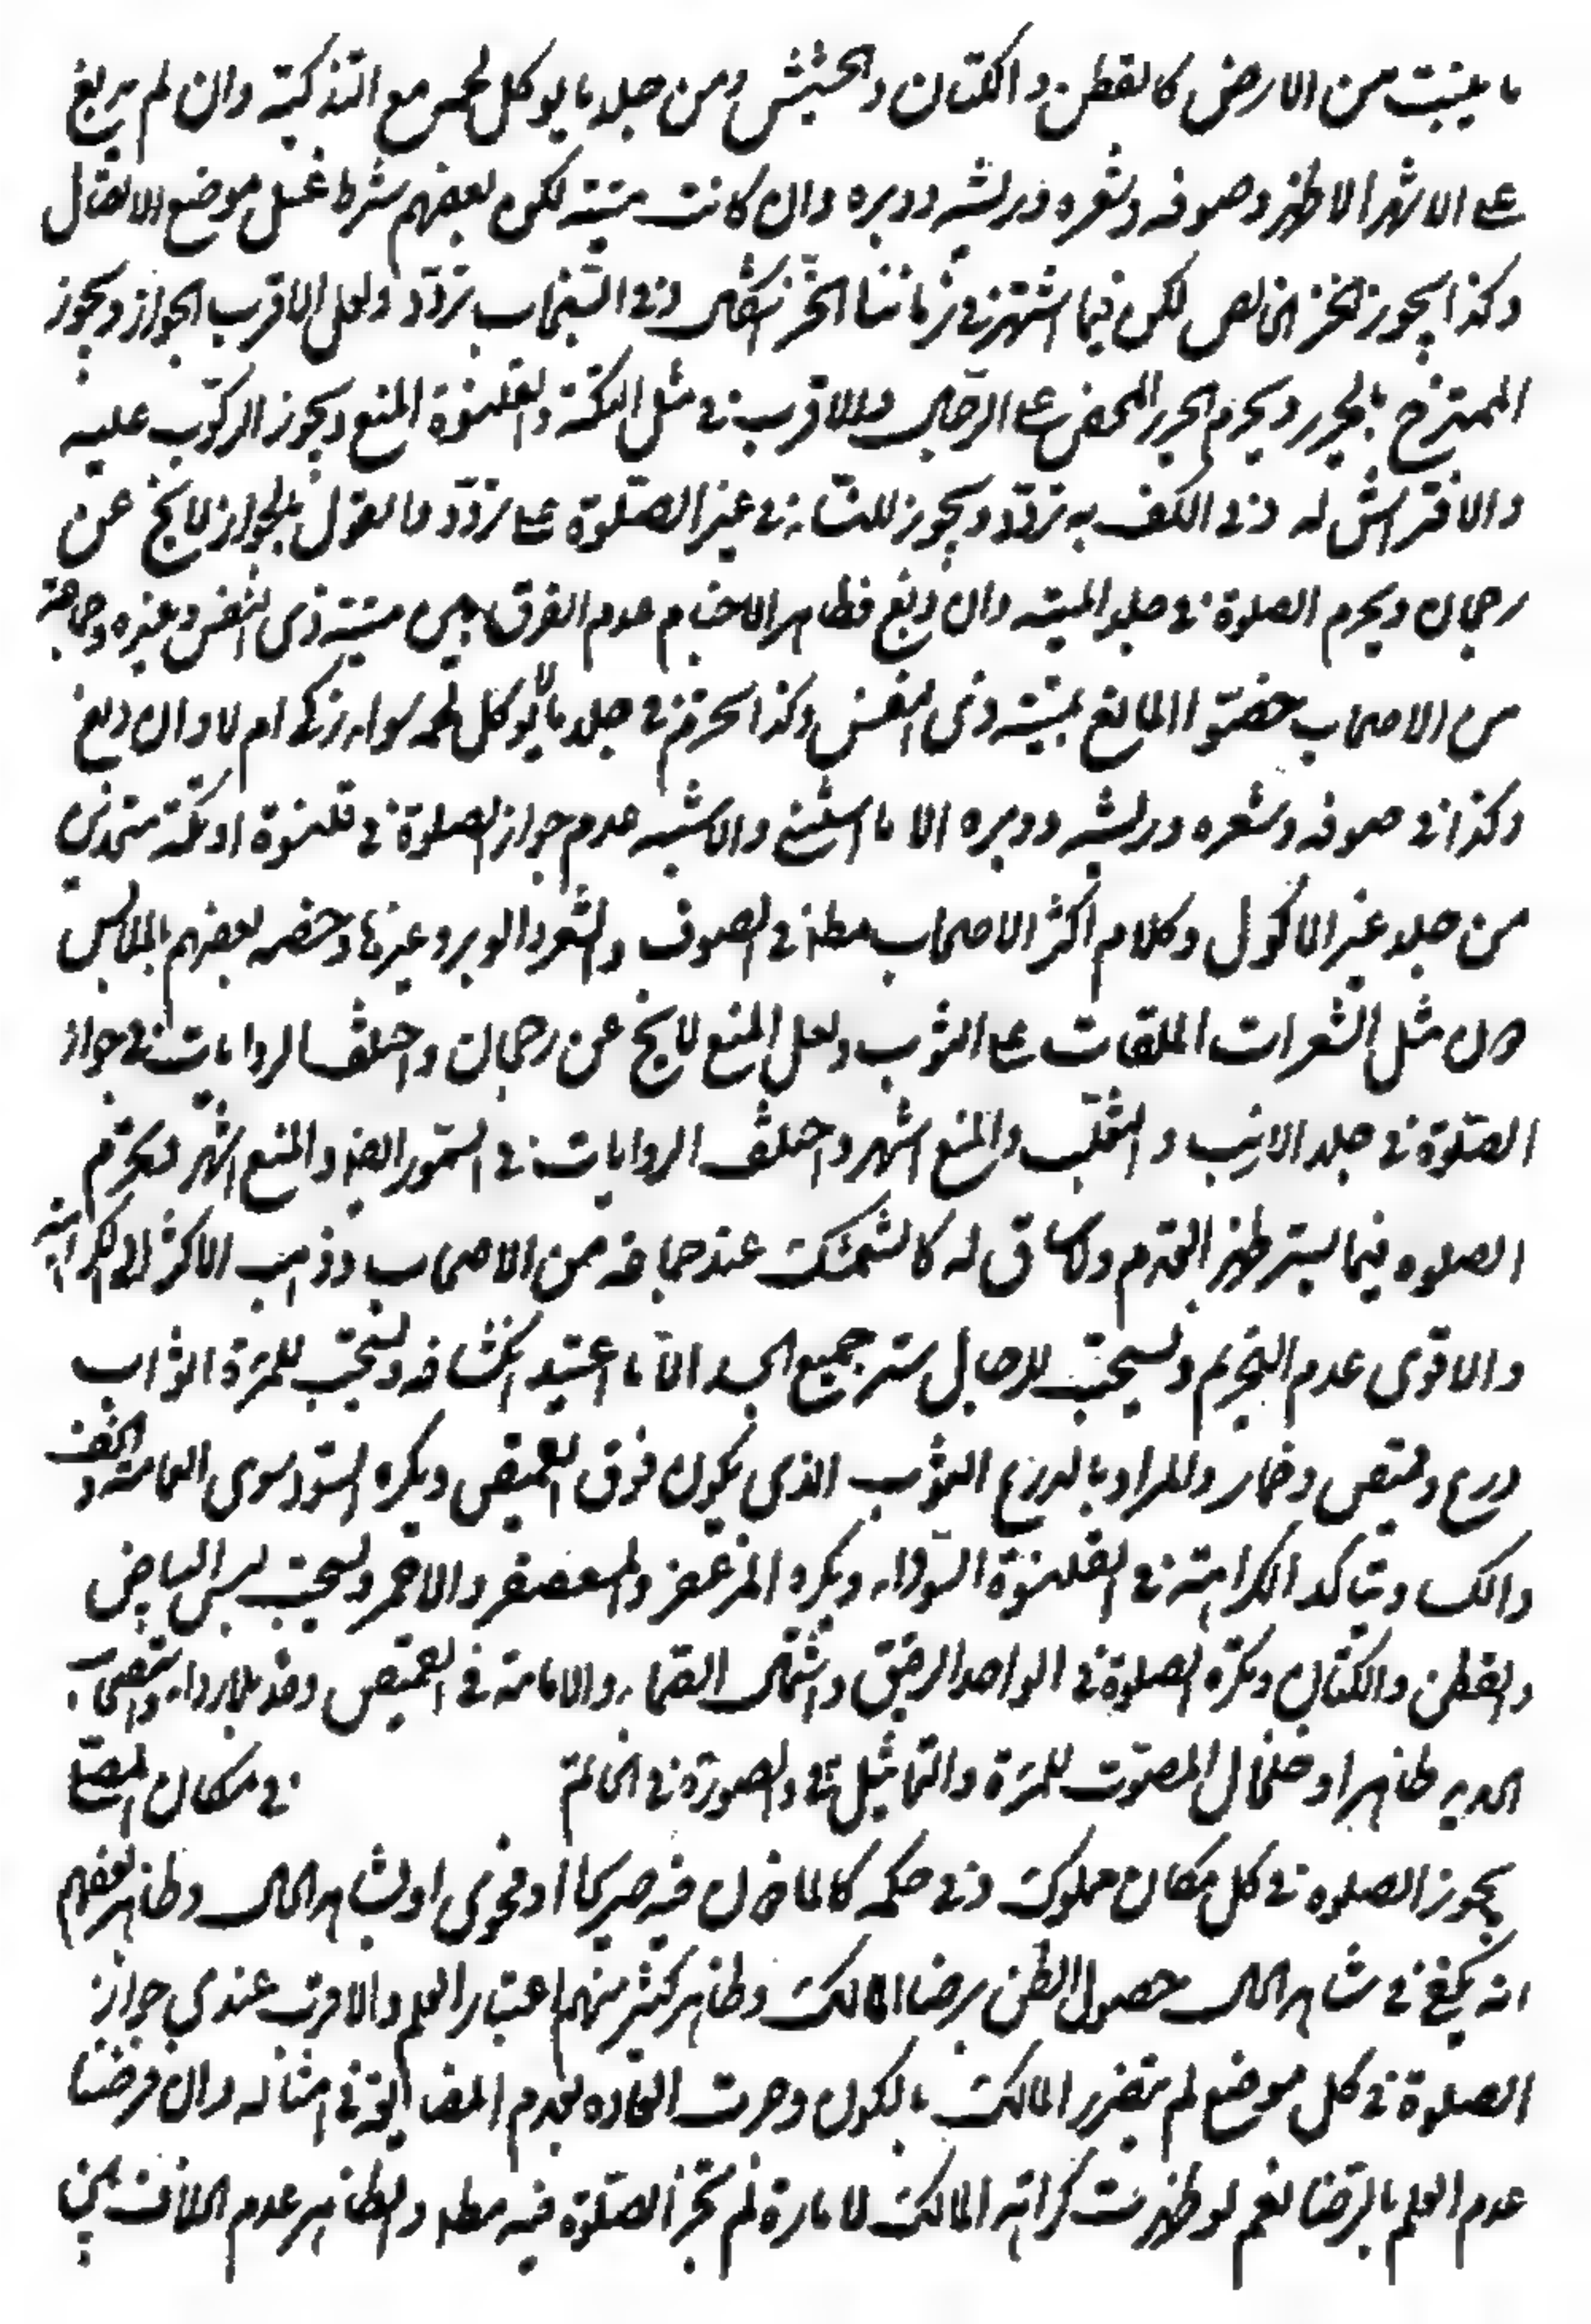 ما ينبت من الارض كالقطن والكتان والحشيش ومن جلد ما يوكل لحمه مع التذكية وان لم يدبغ
على الاشهر الاظهر وصوفه وشعره وريشه ووبره وان كانت ميتة لكن بعضهم شرط غسل موضع الاتصال
وكذا يجوز الخز الخالص لكن فيما اشتهر في زماننا الخز اشكال وفي السنجاب تردد ولعل الاقرب الجواز ويجوز
الممتزج بالحرير ويحرم الحرير المحض على الرجال والاقرب في مثل التكة والقلنسوة المنع ويجوز الركوب عليه
والافتراش له وفي الكف به تردد ويجوز للنساء في غير الصلوة على تردد والقول بالجواز لا يخ عن
رجحان ويحرم الصلوة في جلد الميتة وان دبغ فظاهر الاخبار عدم الفرق بين ميتة ذي النفس وغيره وجماعة
من الاصحاب خصوا المانع بميتة ذي النفس وكذا تحرم في جلد ما لا يوكل لحمه سواء ذكى ام لا وان دبغ
وكذا في صوفه وشعره وريشه ووبره الا ما استثنى والاشبه عدم جواز الصلوة في قلنسوة او تكة متخذين
من جلد غير الماكول وكلام اكثر الاصحاب مطلق في الصوف والشعر والوبر وغيرها وخصه بعضهم بالملابس
دون مثل الشعرات الملقات على الثوب ولعل المنع لا يخ عن رجحان واختلف الروايات في جواز
الصلوة في جلد الارنب والثعلب والمنع اشهر واختلف الروايات في السمور ايضا والمنع اشهر ويحرم
الصلوه فيما يستر ظهر القدم ولا ساق له كالشمشك عند جماعة من الاصحاب وذهب الاكثر الى الكراهة
والاقوى عدم التحريم ويستحب للرجال ستر جميع الجسد الا ما اعتيد انكشافه ويستحب للمرءة اثواب
درع وقميص وخمار والمراد بالدرع الثوب الذي يكون فوق القميص ويكره السود سوى العمامة والخف
والكساء ويتاكد الكراهة في القلنسوة السوداء ويكره المزعفر والمعصفر والاحمر ويستحب لبس البياض
والقطن والكتان ويكره الصلوة في الواحد الرقيق واشتمال الصماء والامامة في القميص وحده بلا رداء واستصحاب
الحديد ظاهرا وخلخال المصوت للمرءة والتماثيل والصورة في الخاتم في مكان المصلى
يجوز الصلوه في كل مكان مملوك وفي حكمه كالماذون فيه صريحا او فحوى او بشاهد الحال وظاهر بعضهم
انه يكفي في شاهد الحال حصول الظن برضا المالك وظاهر كثير منهم اعتبار العلم والاقرب عندي جواز
الصلوة في كل موضع لم يتضرر المالك بالكون وجرت العاده بعدم المضايقة في امثاله وان فرضنا
عدم العلم بالرضا نعم لو ظهرت كراهة المالك لامارة لم تجز الصلوة فيه مطلقا والظاهر عدم الفرق بين